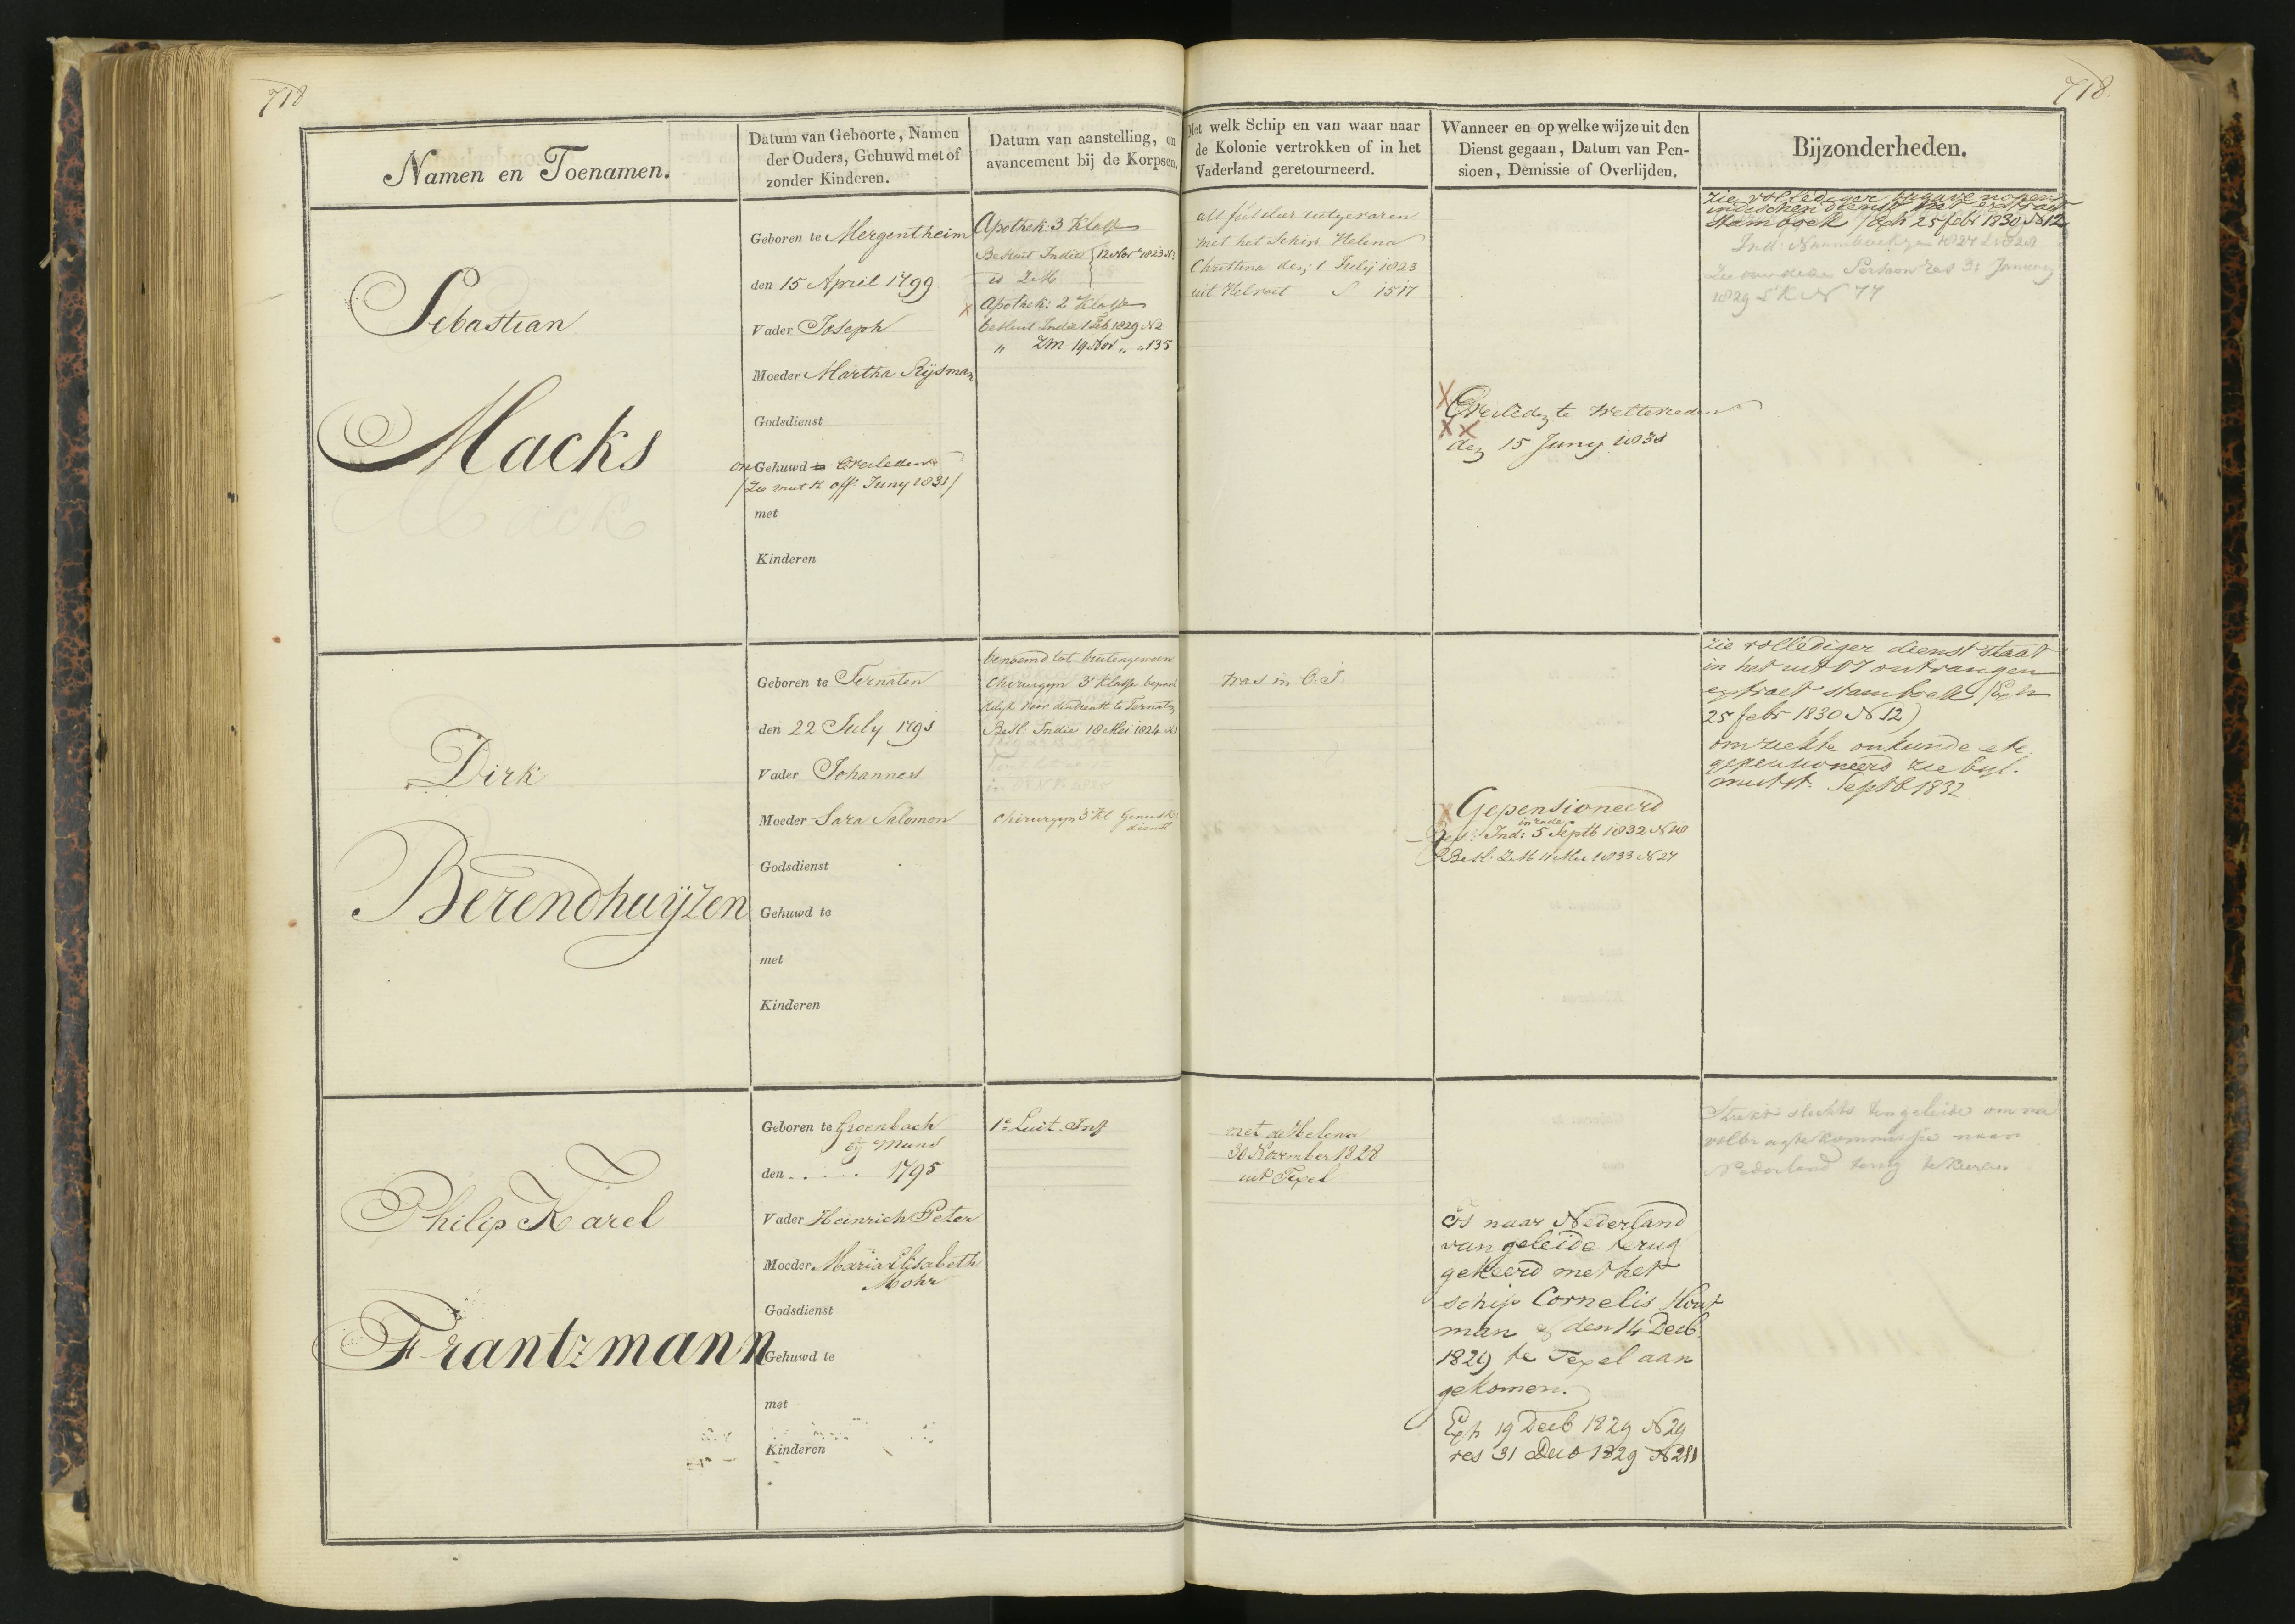 718
718
Namen en Toenamen.
Datum van Geboorte, Namen
der Ouders, Gehuwd met of
zonder Kinderen.
Datum van aanstelling, en
avancement bij de Korpsen.
Met welk Schip en van waar naar
de Kolonie vertrokken of in het
Vaderland geretourneerd.
Wanneer en op welke wijze uit den
Dienst gegaan, Datum van Pen-
sioen, Demissie of Overlijden.
Bijzonderheden.
Sebastian
Macks
Geboren te Mergentheim
den 15 April 1799
Vader Joseph
Moeder Martha Rijsman
Godsdienst
on Gehuwd te Overleden
/Zie mut st off Juny 1831/
met
Kinderen
Apothek: 3 Klasse
Besluit Indie 12 Nov 1823 N
id ZM
Apothek: 2 Klasse
besluit Indie 1 Feb 1829 N 2
" ZM 19 Nov " " 135
als fuselier uitgevaren
met het Schip Helena
Christina den 1 Julij 1823
uit Helvoet S 1517
Overleden te Weltevreden
den 15 Juny 1831
zie vollediger
indischen dienst het extract
Stamboek /Exh 25 febr 1830 N 12
Ind: Naamboekje 1827 & 1828
Zie over deze Persoon res 31 January
1829 N 77
Dirk
Berendhuyzen
Geboren te Ternaten
den 22 July 1791
Vader Johannes
Moeder Sara Salomon
Godsdienst
Gehuwd te
met
Kinderen
benoemd tot buitengewoon
Chirurgyn 3e Klasse bepaal
delyk voor den dienst te Ternaten
Besl: Indie 18 Mei 1824
Chirurgyn 3e Kl Geneesk:
dienst
was in O.I.
Gepensioneerd
in rade
Besl: Ind: 5 Septb 1832 N 18
Besl. ZM 11 Mei 1833 N 27
zie vollediger dienst staat
in het uit OI ontvangen
extract stamboek (Exh
25 febr 1830 N 12)
om ziekte onkunde etc.
gepensioneerd zie byl.
mut st. Septb 1832
Philip Karel
Frantzmann
Geboren te Groenbach
den . . . . . 1795
Vader Heinrich Peter
Moeder Maria Elisabeth
Mohr
Godsdienst
Gehuwd te
met
Kinderen
1e Luit. Inf
met de Helena
30 November 1828
uit Texel
Is naar Nederland
van geleide terug
gekeerd met het
schip Cornelis Hout
man & den 14 Decb.
1829 te Texel aan
gekomen.
Exh 19 Decb 1829 N 29
res 31 Decb 1829 N 211
Strekt slechts ten geleide om na
volbragte kommissie naar
Nederland terug te keeren.